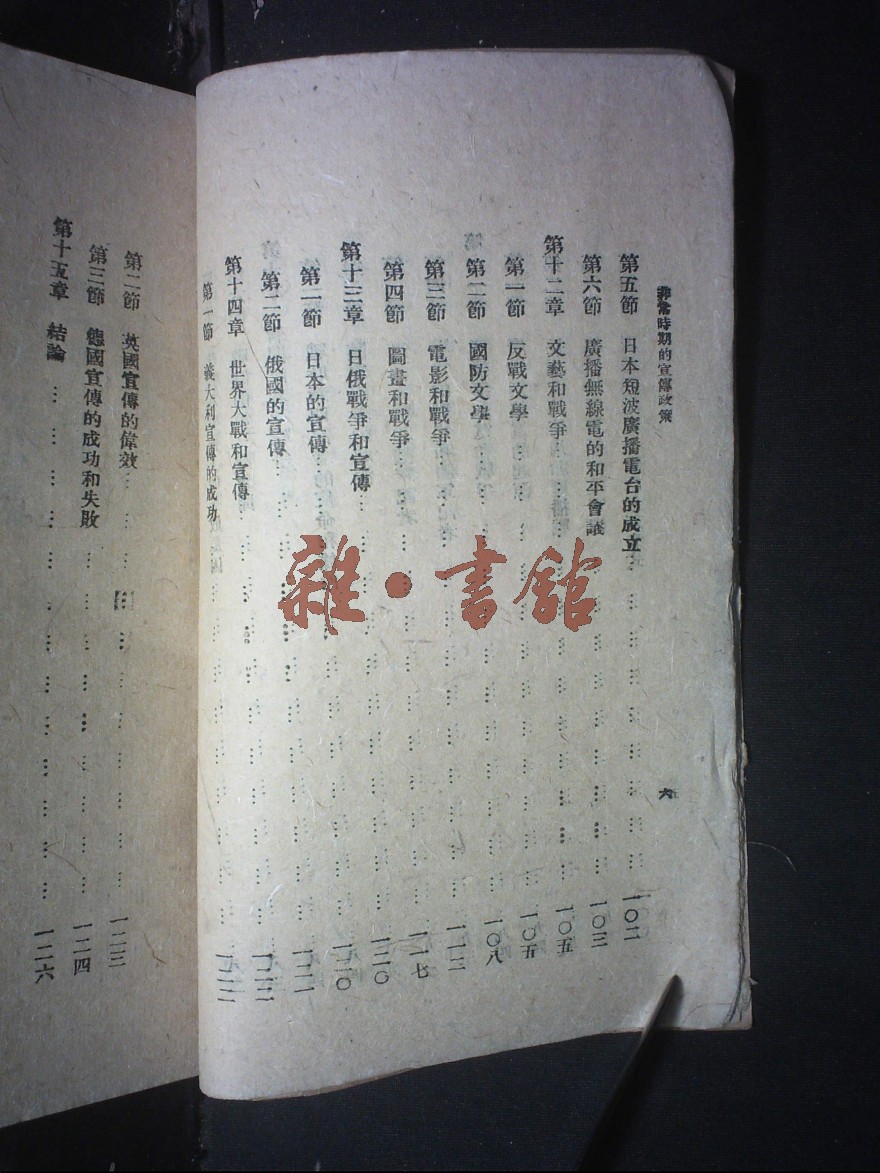 非常時期的宣傳政策
六
第五節 日本短波廣播電台的成立 一〇二
第六節 廣播無線電的和平會議 一〇三
第十二章 文藝和戰爭 一〇五
第一節 反戰文學 一〇五
第二節 國防文學 一〇八
第三節 電影和戰爭 一一三
第四節 圖畫和戰爭 一一七
第十三章 日俄戰爭和宣傳 一二〇
第一節 日本的宣傳
第二節 俄國的宣傳
第十四章 世界大戰和宣傳
第一節 義大利宣傳的成功
第二節 英國宣傳的偉效 一二三
第三節 德國宣傳的成功和失敗 一二四
第十五章 結論 一二六
雜·書館